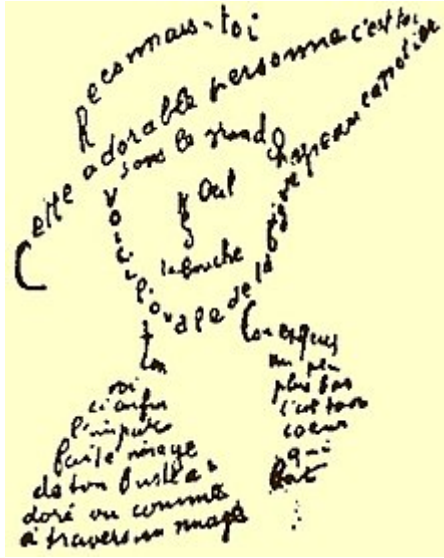 Reconnais-toi
Cette adorable personne c'est toi
sous le grand chapeau canotier
Œil
Nez
la bouche
Voici l'ovale de ta figure
ton cou exquis
voici enfin
l'imparfaite image
de ton buste a
doré vu comme
à travers un nuage
un peu
plus bas
c'est ton
coeur
qui
bat